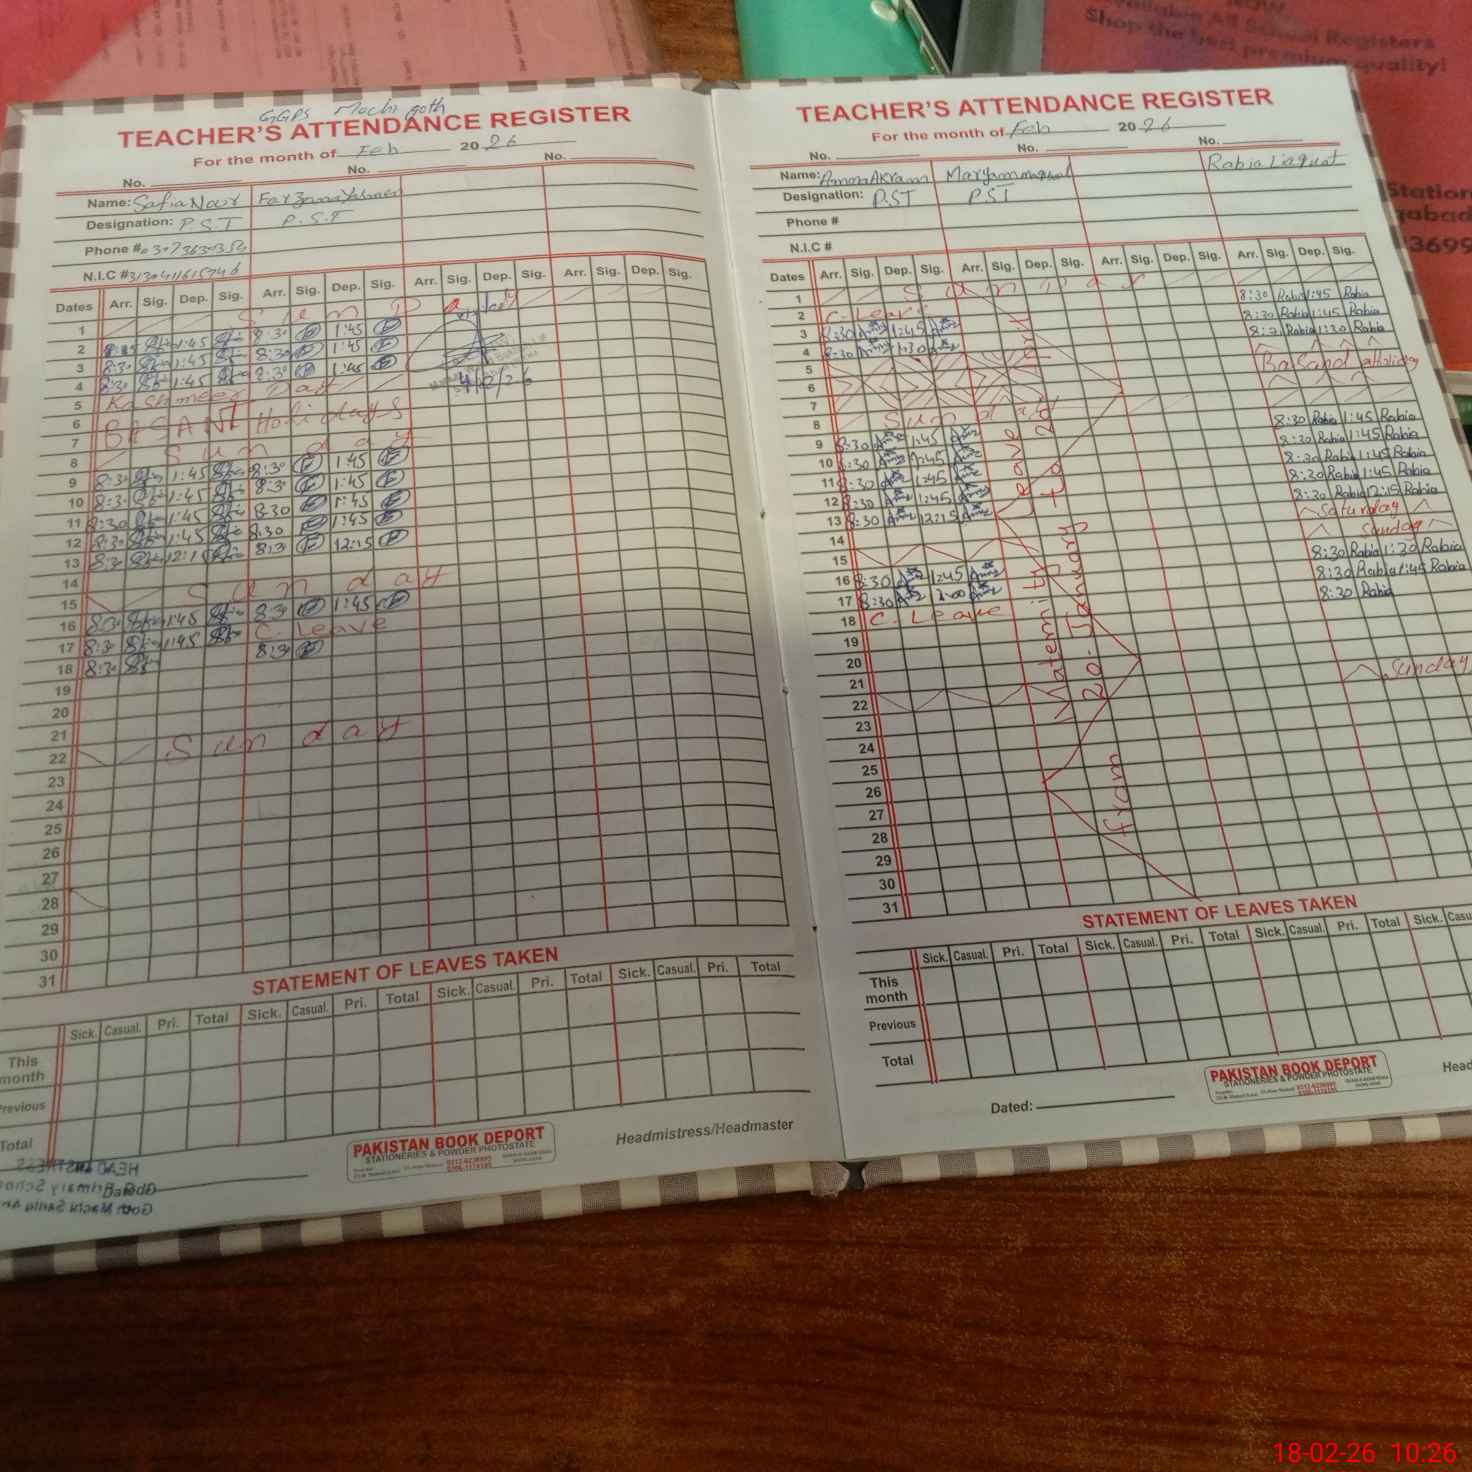 GGPS Mochi goth
TEACHER'S ATTENDANCE REGISTER
For the month of Feb 2026
No. No.
No.
Name: Safia Noor Farzana Yasmeen
Designation: P.S.T P.S.T
Phone #
N.I.C #
Dates Arr. Sig. Dep. Sig. Arr. Sig. Dep. Sig. Arr. Sig. Dep. Sig. Arr. Sig. Dep. Sig.
1 Sunday
2 1:45 8:30 1:45
3 8:30 1:45 8:30 1:45
4 8:30 1:45 8:30 1:45 4/2/26
5 Kashmeer Day
6 BASANT Holidays
7
8 Sunday
9 8:30 1:45 8:30 1:45
10 8:30 1:45 8:30 1:45
11 8:30 1:45 8:30 1:45
12 8:30 1:45 8:30 1:45
13 8:30 12:15 8:30 12:15
14
15 Sunday
16 8:30 1:45 8:30 1:45
17 8:30 1:45 C. Leave
18 8:30 8:30
19
20
21
22 Sunday
23
24
25
26
27
28
29
30
31
STATEMENT OF LEAVES TAKEN
Sick. Casual. Pri. Total Sick. Casual. Pri. Total Sick. Casual. Pri. Total Sick. Casual. Pri. Total
This month
Previous
Total
HEAD MISTRESS
Dated:
PAKISTAN BOOK DEPORT
STATIONERIES & POWDER PHOTOSTATE
Headmistress/Headmaster
TEACHER'S ATTENDANCE REGISTER
For the month of Feb 2026
No. No. No.
Name: Amna Akram Maryam maqsud Rabia Liaquat
Designation: P.ST PST
Phone #
N.I.C #
Dates Arr. Sig. Dep. Sig. Arr. Sig. Dep. Sig. Arr. Sig. Dep. Sig. Arr. Sig. Dep. Sig.
1 Sunday
2 C. Leave 8:30 Rabia 1:45 Rabia
3 8:30 1:45 8:30 Rabia 1:45 Rabia
4 8:30 1:30 8:30 Rabia 1:30 Rabia
5
6 Basand holiday
7
8 Sunday
9 8:30 1:45 8:30 Rabia 1:45 Rabia
10 8:30 1:45 8:30 Rabia 1:45 Rabia
11 8:30 1:45 8:30 Rabia 1:45 Rabia
12 8:30 1:45 8:30 Rabia 1:45 Rabia
13 8:30 12:15 8:30 Rabia 12:15 Rabia
14 Saturday
15 Sunday
16 8:30 1:45 8:30 Rabia 1:30 Rabia
17 8:30 2:00 8:30 Rabia 1:45 Rabia
18 C. Leave 8:30 Rabia
19
20
21
22 Sunday
23
24
25
26
27
28
29
30
31
Maternity Leave
from 20-January to 20
STATEMENT OF LEAVES TAKEN
Sick. Casual. Pri. Total Sick. Casual. Pri. Total Sick. Casual. Pri. Total Sick. Casu
This month
Previous
Total
Dated:
PAKISTAN BOOK DEPORT
STATIONERIES & POWDER PHOTOSTATE
Head
All School Registers
Shop the best premium quality!
Station
3699
18-02-26 10:26